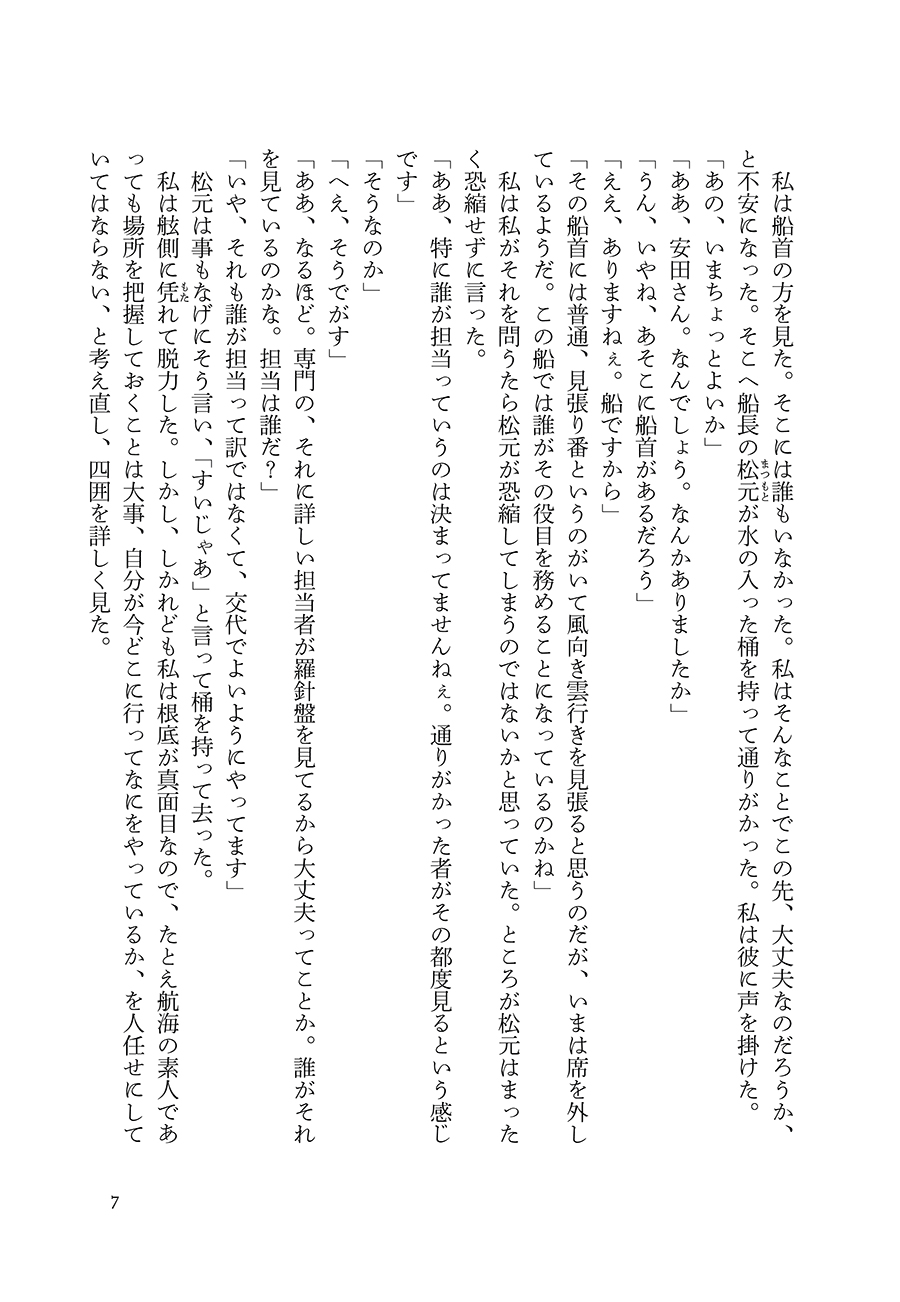 私は船首の方を見た。そこには誰もいなかった。私はそんなことでこの先、大丈夫なのだろうか、
と不安になった。そこへ船長の松元が水の入った桶を持って通りがかった。私は彼に声を掛けた。
まつもと
「あの、いまちょっとよいか」
「ああ、安田さん。なんでしょう。なんかありましたか」
「うん、いやね、あそこに船首があるだろう」
「ええ、ありますねぇ。船ですから」
「その船首には普通、見張り番というのがいて風向き雲行きを見張ると思うのだが、いまは席を外し
ているようだ。この船では誰がその役目を務めることになっているのかね」
　私は私がそれを問うたら松元が恐縮してしまうのではないかと思っていた。ところが松元はまった
く恐縮せずに言った。
「ああ、特に誰が担当っていうのは決まってませんねぇ。通りがかった者がその都度見るという感じ
です」
「そうなのか」
「へえ、そうでがす」
「ああ、なるほど。専門の、それに詳しい担当者が羅針盤を見てるから大丈夫ってことか。誰がそれ
を見ているのかな。担当は誰だ？」
「いや、それも誰が担当って訳ではなくて、交代でよいようにやってます」
　松元は事もなげにそう言い、「すいじゃあ」と言って桶を持って去った。
　私は舷側に凭れて脱力した。しかし、しかれども私は根底が真面目なので、たとえ航海の素人であ
もた
っても場所を把握しておくことは大事、自分が今どこに行ってなにをやっているか、を人任せにして
いてはならない、と考え直し、四囲を詳しく見た。
7